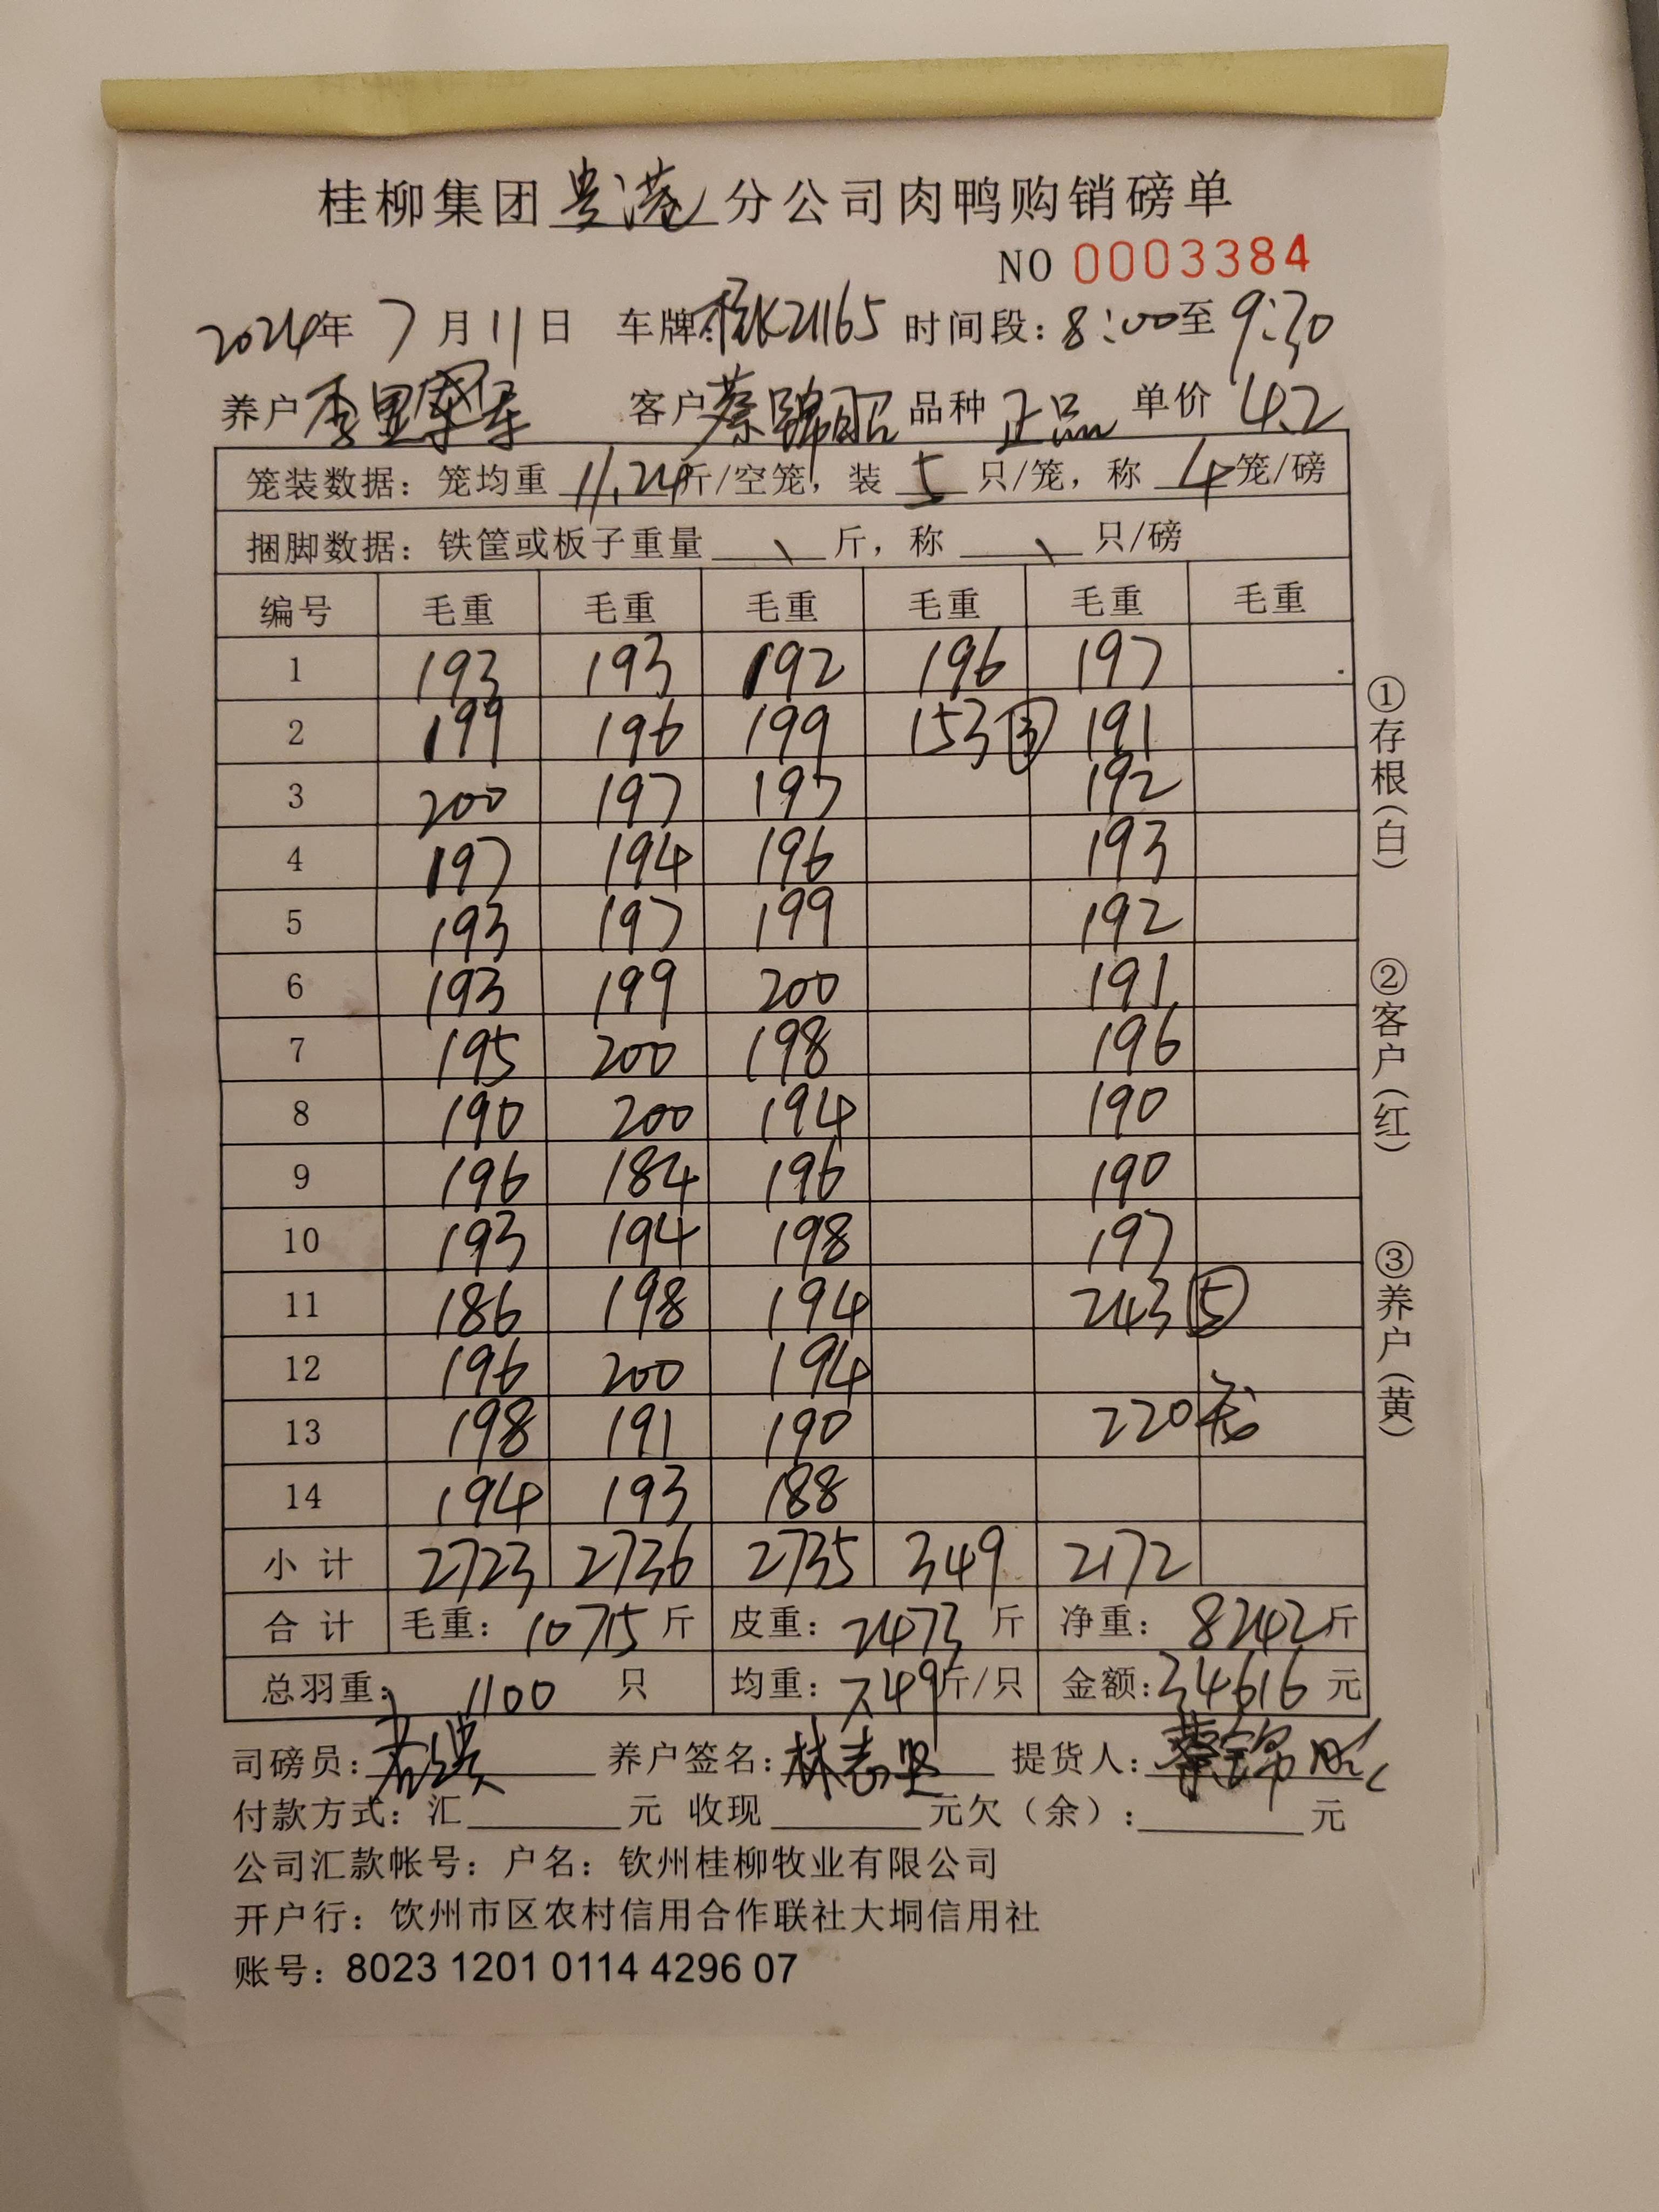 桂柳集团贵港分公司肉鸭购销磅单
NO 0003384
2024年 7月11日 车牌:桂K21165 时间段:8:00至9:30
养户 李 客户 蔡锦昭 品种 正品 单价 4.2
笼装数据:笼均重 11.24斤/空笼,装 5 只/笼,称 4笼/磅
捆脚数据:铁筐或板子重量 \ 斤,称 \ 只/磅
编号 毛重 毛重 毛重 毛重 毛重 毛重
1 193 193 192 196 197
2 199 196 199 153③ 191
3 200 197 197 192
4 197 194 196 193
5 193 197 199 192
6 193 199 200 191
7 195 200 198 196
8 190 200 194 190
9 196 184 196 190
10 193 194 198 197
11 186 198 194 243⑤
12 196 200 194
13 198 191 190 220
14 194 193 188
小计 2723 2736 2735 349 2172
合计 毛重:10715斤 皮重:2473斤 净重:8242斤
总羽重:1100 只 均重:7.49斤/只 金额:34616元
司磅员: 养户签名:林志坚 提货人:蔡锦昭
付款方式:汇 元 收现 元欠(余): 元
公司汇款帐号:户名:钦州桂柳牧业有限公司
开户行:饮州市区农村信用合作联社大垌信用社
账号:8023 1201 0114 4296 07
①存根(白) ②客户(红) ③养户(黄)